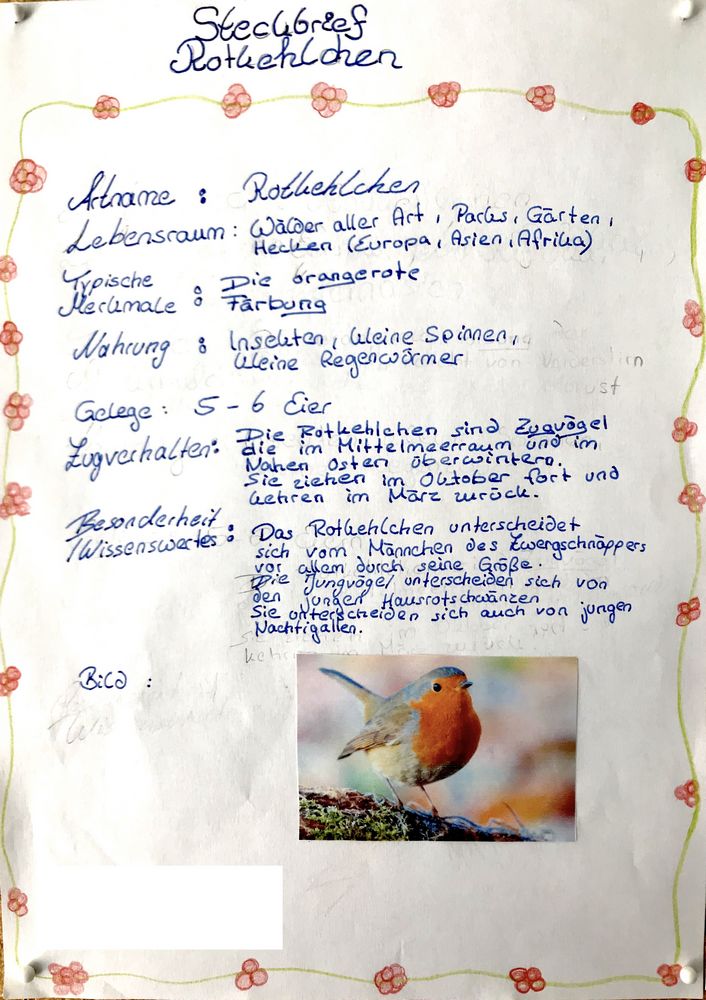 Steckbrief
Rotkehlchen
Artname : Rotkehlchen
Lebensraum : Wälder aller Art, Parks, Gärten,
Hecken (Europa, Asien, Afrika)
Typische Merkmale : Die orangerote
Färbung
Nahrung : Insekten, kleine Spinnen,
kleine Regenwürmer
Gelege : 5 - 6 Eier
Zugverhalten : Die Rotkehlchen sind Zugvögel
die im Mittelmeerraum und im
Nahen Osten überwintern.
Sie ziehen im Oktober fort und
kehren im März zurück.
Besonderheit
/Wissenswertes : Das Rotkehlchen unterscheidet
sich vom Männchen des Zwergschnäppers
vor allem durch seine Größe.
Die Jungvögel unterscheiden sich von
den jungen Hausrotschwänzen
Sie unterscheiden sich auch von jungen
Nachtigallen.
Bild :